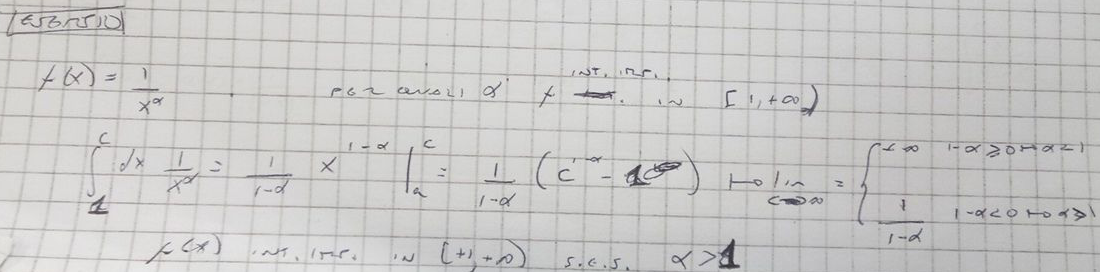 ESERCIZIO
f(x) = 1/x^α per quali α f int. irr. in [1, +∞)
∫_1^c dx 1/x^α = 1/(1-α) x^{1-α} |_a^c = 1/(1-α) (c^{1-α} - 1) ↦ lim_{c→∞} = { +∞ 1-α ≥ 0 ↦ α < 1
1/(1-α) 1-α < 0 ↦ α > 1
f(x) int. irr. in [+1, +∞) s.e.s. α > 1